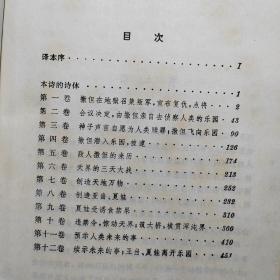 目 次
译本序 I
本诗的诗体 1
第一卷 撒但在地狱召集叛军,宣布复仇,点将 2
第二卷 会议决定,由撒但亲自去侦察人类的乐园 43
第三卷 神子声言自愿为人类赎罪,撒但飞向乐园 90
第四卷 撒但潜入乐园,被逮 126
第五卷 敌人撒但的来历 174
第六卷 天界的三天大战 218
第七卷 创造天地万物 252
第八卷 创造亚当、夏娃 282
第九卷 夏娃受诱食禁果
第十卷 违禁令,惊动天界,筑大桥,横贯浑沌界 360
第十一卷 预示人类未来的事 410
第十二卷 续示未来的事,亚当、夏娃离开乐园 451